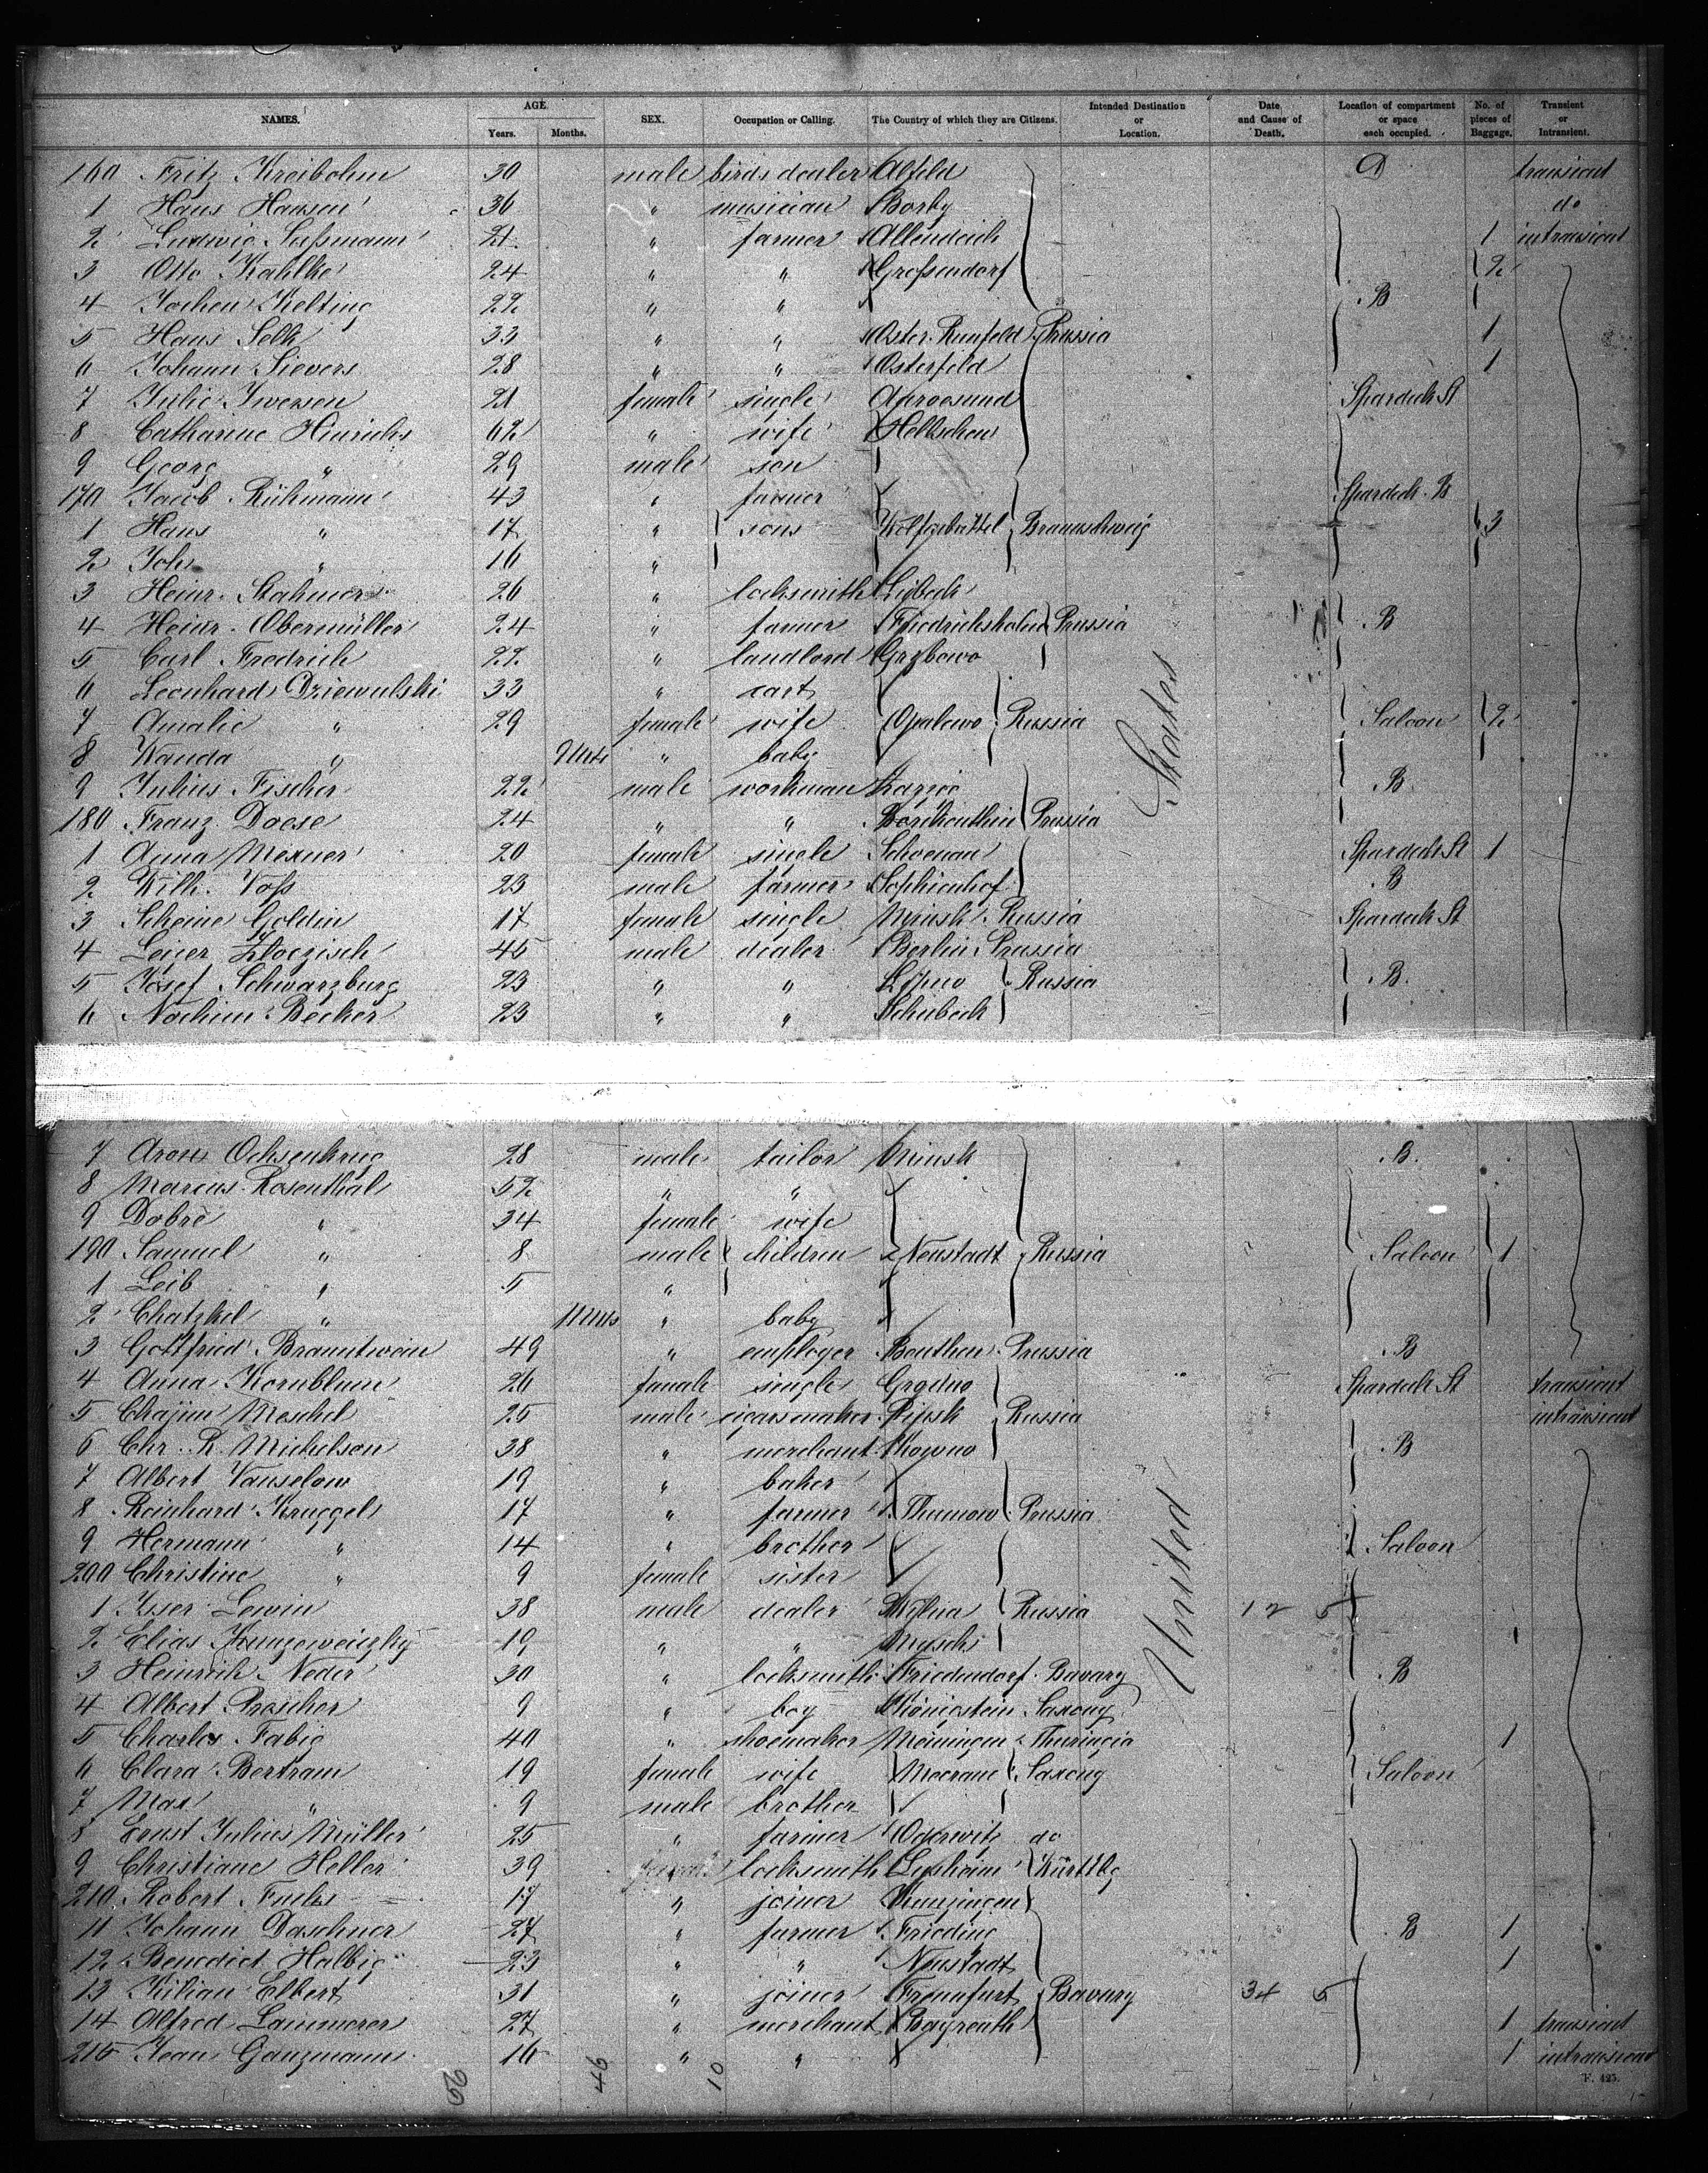 NAMES. AGE Years. Months. SEX. Occupation or Calling. The Country of which they are Citizens. Intended Destination or Location. Date and Cause of Death. Location of compartment or space each occupied. No. of pieces of Baggage. Transient or Intransient.
160 Fritz Kreibohm 30 male birds dealer Alfeld D transient
1 Hans Hansen 36 " musician Borby do
2 Ludwig Sußmann 21 " farmer Allendeich 1 intransient
3 Otto Kahlke 24 " " Großendorf 2
4 Jochen Kelting 22 " " B
5 Hans Selk 33 " " Oster Prussia 1
6 Johann Sievers 28 " " Osterfeld 1
7 Julie Iwersen 21 female single Aaroesund Spardeck St
8 Catharine Hinrichs 62 " wife
9 Georg " 29 male son
170 Jacob Rühmann 43 " farmer Spardeck B
1 Hans " 17 " sons Wolfenbüttel Braunschweig 3
2 Joh. " 16 "
3 Heinr. Stahmer 26 " locksmith
4 Heinr. Obermüller 24 " farmer Prussia B
5 Carl Fredrich 22 " landlord Grzbowo
6 Leonhard Dziewulski 33 " cart
7 Amalie " 29 female wife Opalewo Russia Saloon 2
8 Wanda " 9 Mts " baby
9 Julius Fischer 22 male workman B
180 Franz Doese 24 " " Prussia
1 Anna Mexner 20 female single Schoenau Spardeck St 1
2 Wilh. Voß 23 male farmer Sophienhof B
3 Scheine Goldin 17 female single Minsk Russia Spardeck St
4 Leiser 45 male dealer Berlin Prussia
5 Josef Schwarzburg 23 " " Lipno Russia B.
6 Nochim Becker 23 " "
States
7 Aron Ochsenkrug 28 male tailor Minsk B.
8 Marcus Rosenthal 52 " "
9 Dobre " 34 female wife
190 Samuel " 8 male children Neustadt Russia Saloon 1
1 Leib " 5 "
2 Chatzkel " 11 Mts " baby
3 Gottfried Brauntwein 49 " employer Beuthen Prussia B
4 Anna Kornblum 26 female single Grodno Spardeck St transient
5 Chajim Meschel 25 male cigarsmaker Russia intransient
6 Chr. R. Michelson 38 " merchant Kowno B
7 Albert Vanselow 19 " baker
8 Reinhard Kruggel 17 " farmer Thunow Prussia
9 Hermann " 14 " brother Saloon
200 Christine " 9 female sister
1 Isser Lewin 38 male dealer Wilna Russia 12 5
2 Elias 19 " "
3 Heinrich Neder 30 " locksmith Friedendorf Bavary B
4 Albert Proscher 9 " boy Königstein Saxony
5 Charles Fabig 40 " shoemaker Meiningen Thuringia 1
6 Clara Bertram 19 female wife Meerane Saxony Saloon
7 Max " 9 male brother
8 Ernst Julius Müller 25 " farmer Oderwitz do
9 Christiane Heller 39 locksmith Württbg
210 Robert Fuchs 17 " joiner
11 Johann Daschner 27 " farmer Frieding B 1
12 Benedict Halbig 23 " " Neustadt 1
13 Kilian Elbert 31 " joiner Bavary 34 5
14 Alfred Lammerer 27 " merchant Bayreuth 1 transient
215 Jean Ganzmann 16 " " 1 intransient
United
46 10
F. 425.